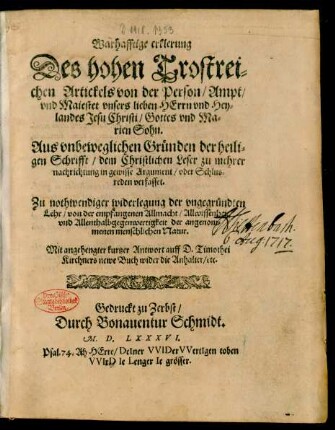 Warhafftige erklerung
Des hohen Trostrei-
chen Artickels von der Person/ Ampt/
vnd Maiestet vnsers lieben HErrn vnd Hey-
landes Jesu Christi/ Gottes vnd Ma-
rien Sohn.
Aus vnbeweglichen Gründen der heili-
gen Schrifft/ dem Christlichen Leser zu mehrer
nachrichtung in gewisse Argument/ oder Schlus-
reden verfasset.
Zu nothwendiger widerlegung der vngegründten
Lehr/ von der empfangenen Allmacht/ Allwissenheit
vnd Allenthalbgegenwertigkeit der angenom-
menen menschlichen Natur.
Mit angehengter kurtzer Antwort auff D. Timothei
Kirchners newe Buch wider die Anhalter/ etc.
Gedruckt zu Zerbst/
Durch Bonauentur Schmidt.
M. D. LXXXVI.
Psal. 74. Ah HErre/ DeIner VVIDerVVertIgen toben
VVIrD Ie Lenger Ie grösser.